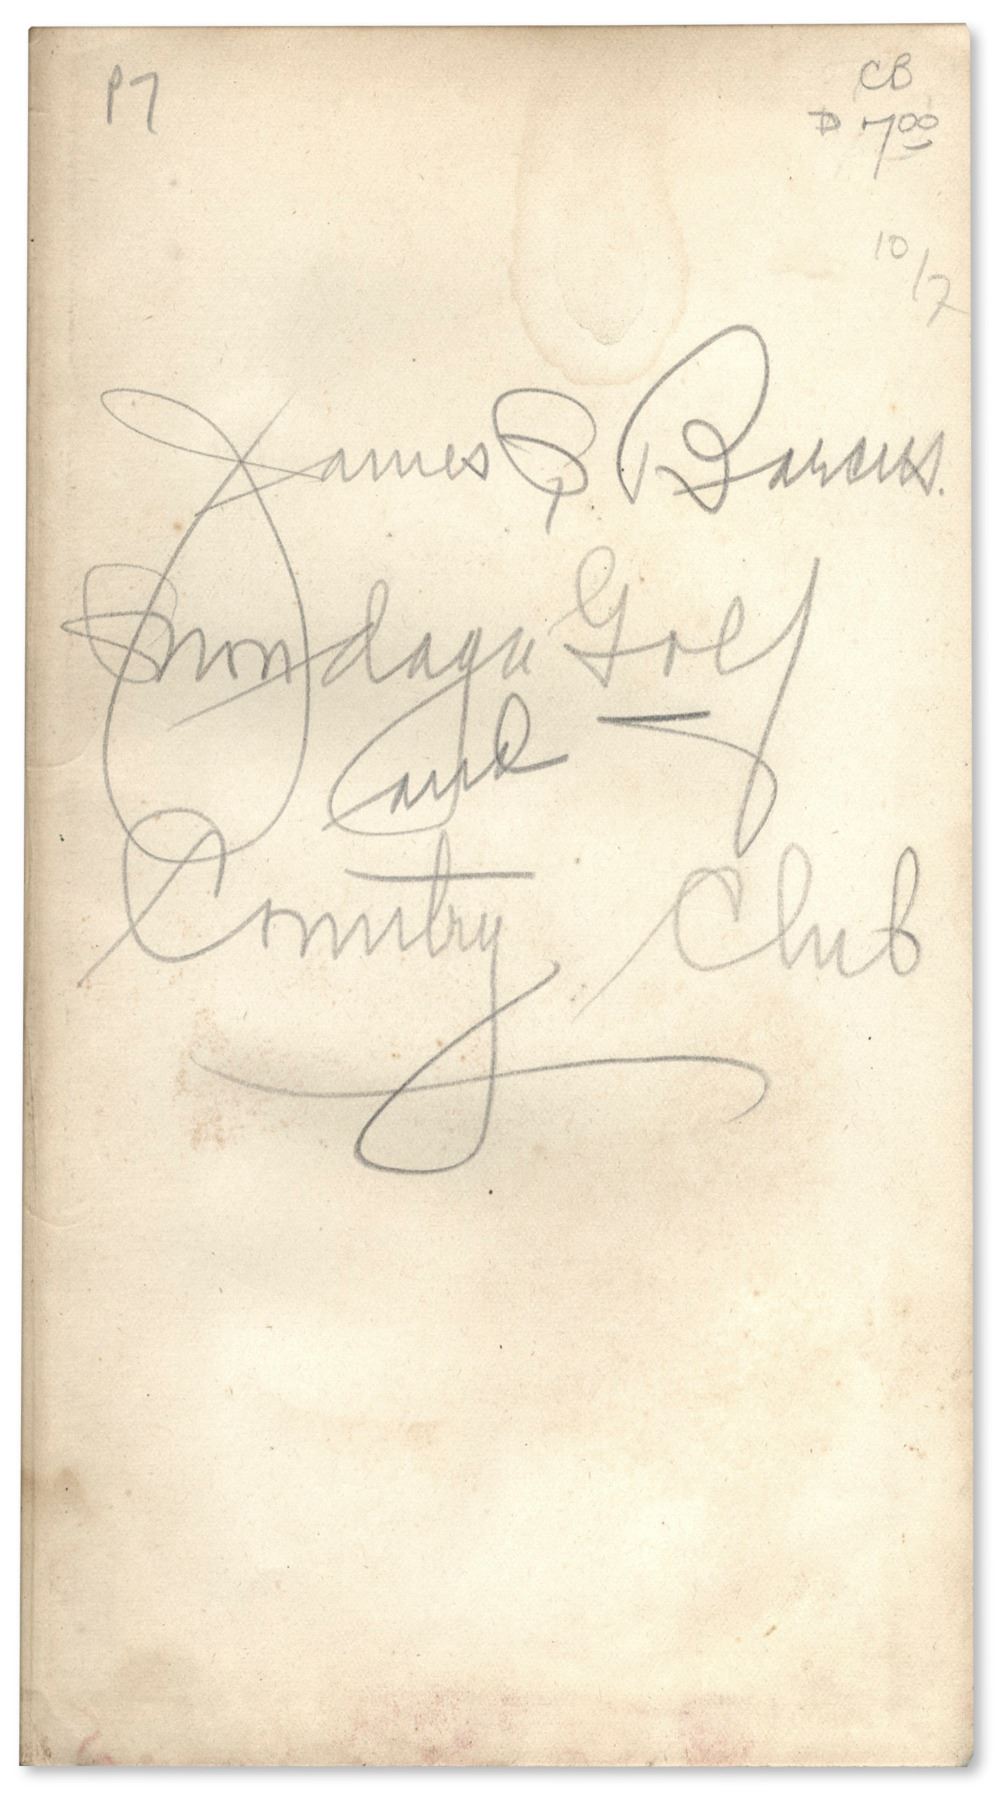 P7
CB
D 7.00
10/7
James Barnes.
Onondaga Golf
and
Country Club